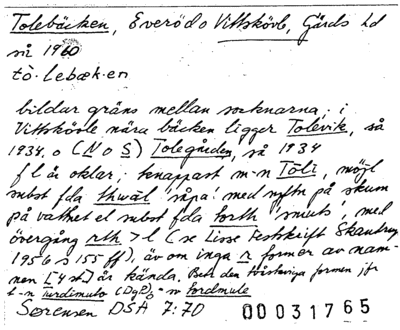 Tolebäcken, Everöd o Vittskövle, Gärds hd
nä 1960
tò·lebæk·en
bildar gräns mellan socknarna; i
Vittskövle nära bäcken ligger Tolevik, så
1934, o (N o S) Tolegården, så 1934
f l är oklar; knappast m-n Tōli, möjl
subst fda thwāl 'såpa' med syftn på skum
på vattnet el subst fda torth 'smuts', med
övergång rth > l (se Lisse Festskrift Skautrup
1956 s 155 ff), äv om inga r former av nam-
nen [4 st] är kända. Betr den tvåstaviga formen jfr
t-n Turdimulo (DgP) o -n Tordmule
Sørensen DSA 7:70
00031765